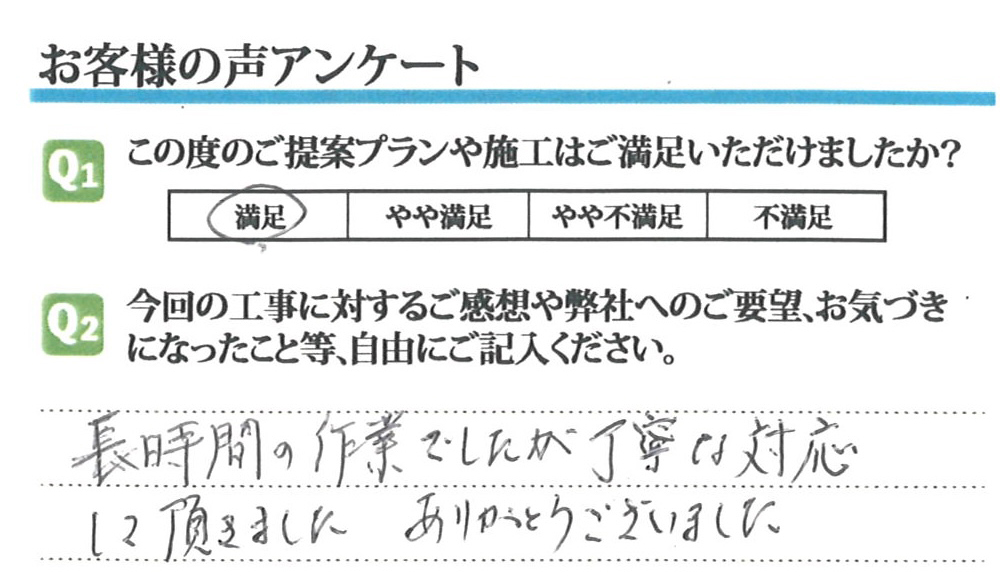 お客様の声アンケート
Q1 この度のご提案プランや施工はご満足いただけましたか?
満足 やや満足 やや不満足 不満足
Q2 今回の工事に対するご感想や弊社へのご要望、お気づき
になったこと等、自由にご記入ください。
長時間の作業でしたが丁寧な対応
して頂きました ありがとうございました